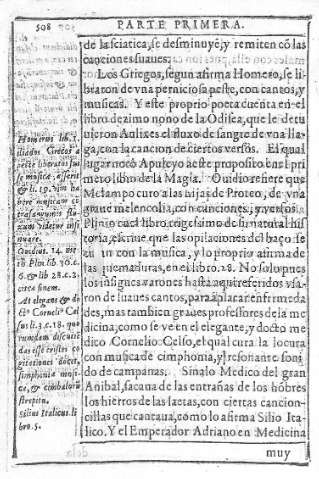 508 PARTE PRIMERA.
de la sciatica, se desminuye, y remiten cō las
canciones suaues.
Los Griegos, segun afirma Homero, se li-
braron de vna perniciosa peste, con cantos, y
musicas. Y este proprio poeta cuenta en el
libro dezimo nono de la Odisea, que le detu
uieron Aulixes el fluxo de sangre de vna lla-
ga, con la cancion de ciertos versos. El qual
lugar noto Apuleyo a este proposito en el pri
mero libro de la Magia. Ouidio refiere que
Melampo curo a las hijas de Proteo, de vna
graue melencolia, con canciones, y versos.
Plinio en el libro trigesimo de su natural his
toria, escriue que las opilaciones del baço se
con la musica, y lo proprio afirma de
las quemaduras, en el libro. 28. No solo pues
los insignes varones hasta aqui referidos vsa-
ron de suaues cantos, para aplacar enfermeda
des, mas tambien graues professores de la me
dicina, como se ve en el elegante, y docto me
dico Cornelio Celso, el qual cura la locura
con musica de cimphonia, y resonante soni
do de campanas. Sinalo Medico del gran
Anibal, sacaua de las entrañas de los hōbres
los hierros de las saetas, con ciertas cancion-
cillas que cantaua, como lo afirma Silio Ita-
lico. Y el Emperador Adriano en Medicina
muy
Homerus lib. 1.
iliados Grecos a
peste liberatos fuis
se musica, asserit
& li. 19.
bere musicam
sanguinis flu
xum videtur insi
nuare.
Ouidius. 14. vit
18. Plin. lib. 30. c.
6. & lib 28. c. 2.
circa finem.
At elegans & do
ctꝰ Cornelis Cel
sus li. 3. c. 18. quo
rumdam discutien
das esse tristes co
gitationes docet,
simphonia musi-
ca, & cimbalorū
strepitu.
Silius Italicus li
bro. 5.